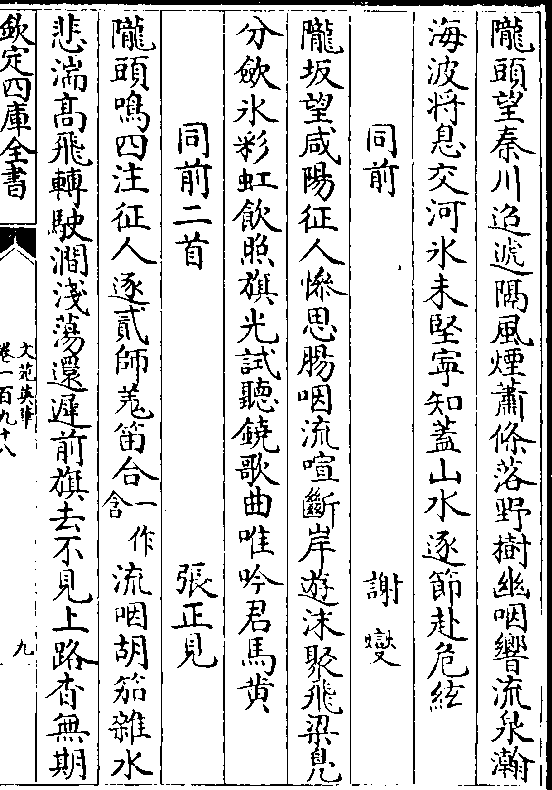 隴頭望秦川迢遞隔風煙蕭條落野樹幽咽響流泉瀚
海波將息交河氷未堅寜知葢山水逐節赴危絃
同前 謝燮
隴坂望咸陽征人慘思腸咽流喧斷岸遊沫聚飛梁鳬
分歛氷彩虹飲照旗光試聽鐃歌曲唯吟君馬黄
同前二首 張正見
隴頭鳴四注征人逐貳師羗笛合一作含流咽胡笳雜水
悲湍髙飛轉駛澗淺蕩還遲前旗去不見上路杳無期
欽定四庫全書
文苑英華
卷一百九十八
九